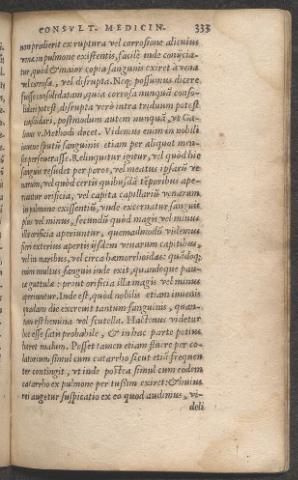 CONSVLT. MEDICIN. 333
non prodierit ex ruptura vel corrosione alicuius
venæ in pulmone existentis, facilè inde coniicia-
tur, quòd & maior copia sanguinis exiret à vena
vel corrosa, vel disrupta. Neq; possumus dicere,
fuisse consolidatam, quia corrosa nunquā conso-
lidari potest, disrupta verò intra triduum potest
consolidari, postmodum autem nunquā, vt Ga-
lenus v. Methodi docet. Videmus enim in nobili
iuuene sputū sanguinis etiam per aliquot men-
ses perseuerasse. Relinquitur igitur, vel quòd hic
sanguis resudet per poros, vel meatus ipsarū ve-
narum, vel quòd certis quibusdā tēporibus ape-
riantur orificia, vel capita capillariū venarum
in pulmone existentiū, vnde excernatur sanguis
plus vel minus, secundū quòd magis vel minus
illa orificia aperiuntur, quemadmodū videmus
fieri exterius apertis ijsdem venarum capitibus,
vel in naribus, vel circa hæmorrhoidas: quādoq;
enim multus sanguis inde exit, quandoque pau-
cæ guttulæ: prout orificia illa magis vel minus
aperiuntur. Inde est, quòd nobilis etiam iuuenis
quadam die excreuit tantum sanguinis, quan-
tum est hemina vel scutella. Hactenus videtur
hoc esse satis probabile, & in hac parte potius
hæret malum. Posset tamen etiam fluere per co-
latorium simul cum catarrho sicut etiā frequen
ter contingit, vt inde postea simul cum eodem
catarrho ex pulmone per tussim exiret: & huius
rei augetur suspicatio ex eo quod audimus, vi-
deli